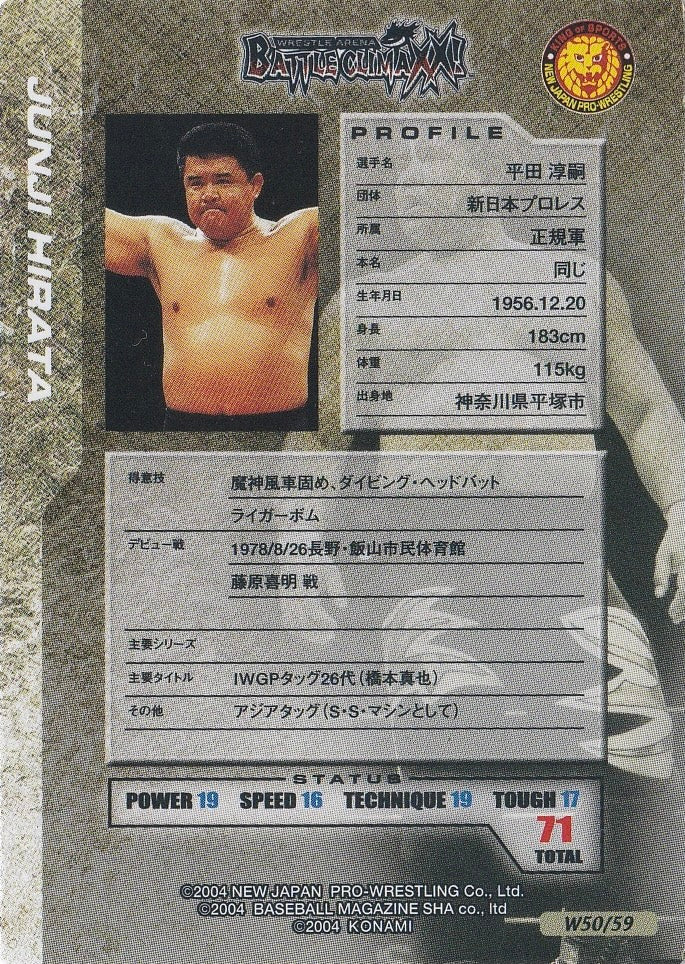 WRESTLE ARENA
BATTLE CLIMAXX!
KING OF SPORTS
NEW JAPAN PRO-WRESTLING
JUNJI HIRATA
PROFILE
選手名 平田 淳嗣
団体 新日本プロレス
所属 正規軍
本名 同じ
生年月日 1956.12.20
身長 183cm
体重 115kg
出身地 神奈川県平塚市
得意技 魔神風車固め、ダイビング・ヘッドバット
ライガーボム
デビュー戦 1978/8/26長野・飯山市民体育館
藤原喜明 戦
主要シリーズ
主要タイトル IWGPタッグ26代(橋本真也)
その他 アジアタッグ(S・S・マシンとして)
STATUS
POWER 19 SPEED 16 TECHNIQUE 19 TOUGH 17
71
TOTAL
©2004 NEW JAPAN PRO-WRESTLING Co., Ltd.
©2004 BASEBALL MAGAZINE SHA co., ltd
©2004 KONAMI
W50/59